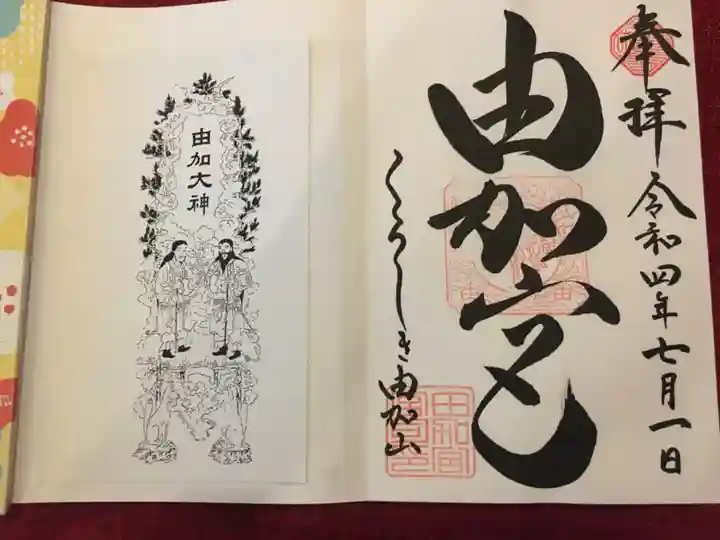 奉拝
令和四年七月一日
由加宮
くすしき由加山
由加宮
由加大神